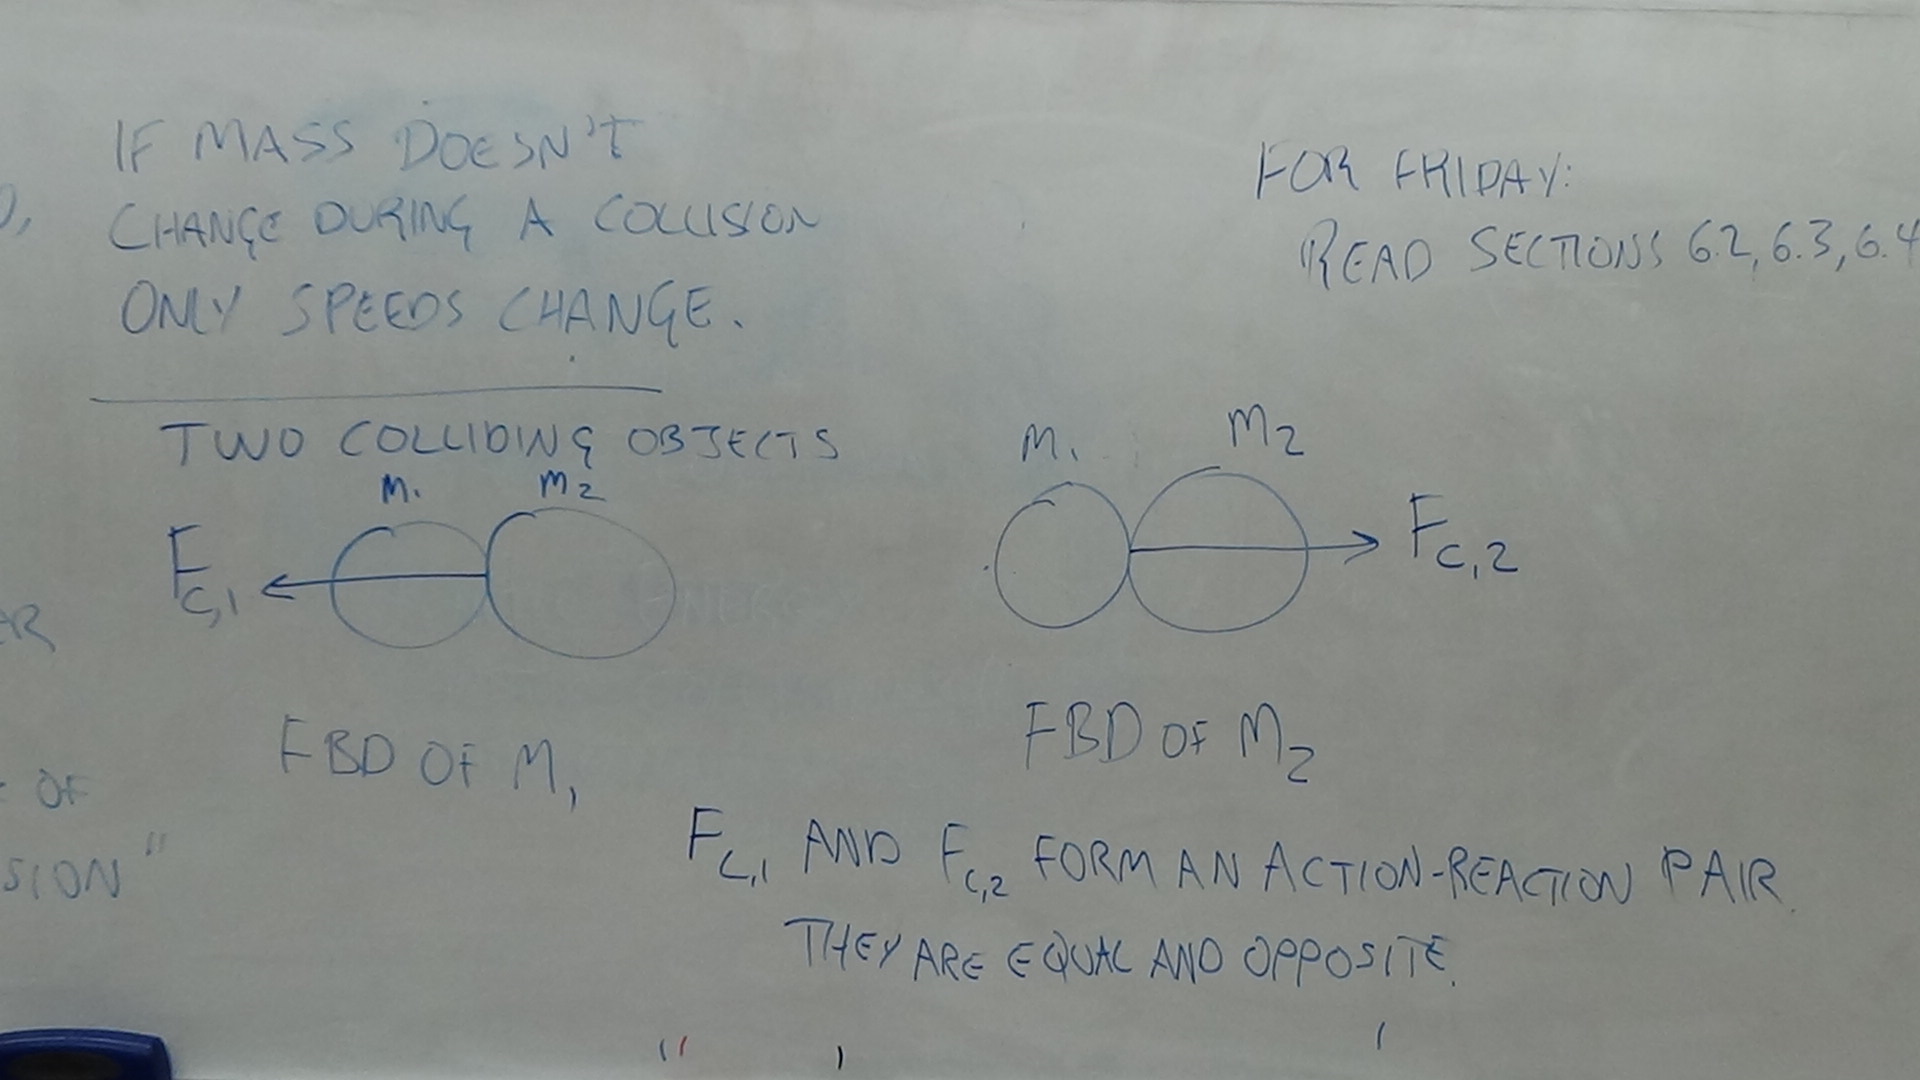 IF MASS DOESN'T
CHANGE DURING A COLLISION
ONLY SPEEDS CHANGE.
FOR FRIDAY:
READ SECTIONS 6.2, 6.3, 6.4
TWO COLLIDING OBJECTS
M1 M2
FC,1
M1 M2
FC,2
FBD OF M1
FBD OF M2
FC,1 AND FC,2 FORM AN ACTION-REACTION PAIR.
THEY ARE EQUAL AND OPPOSITE.
ER
OF
SION"